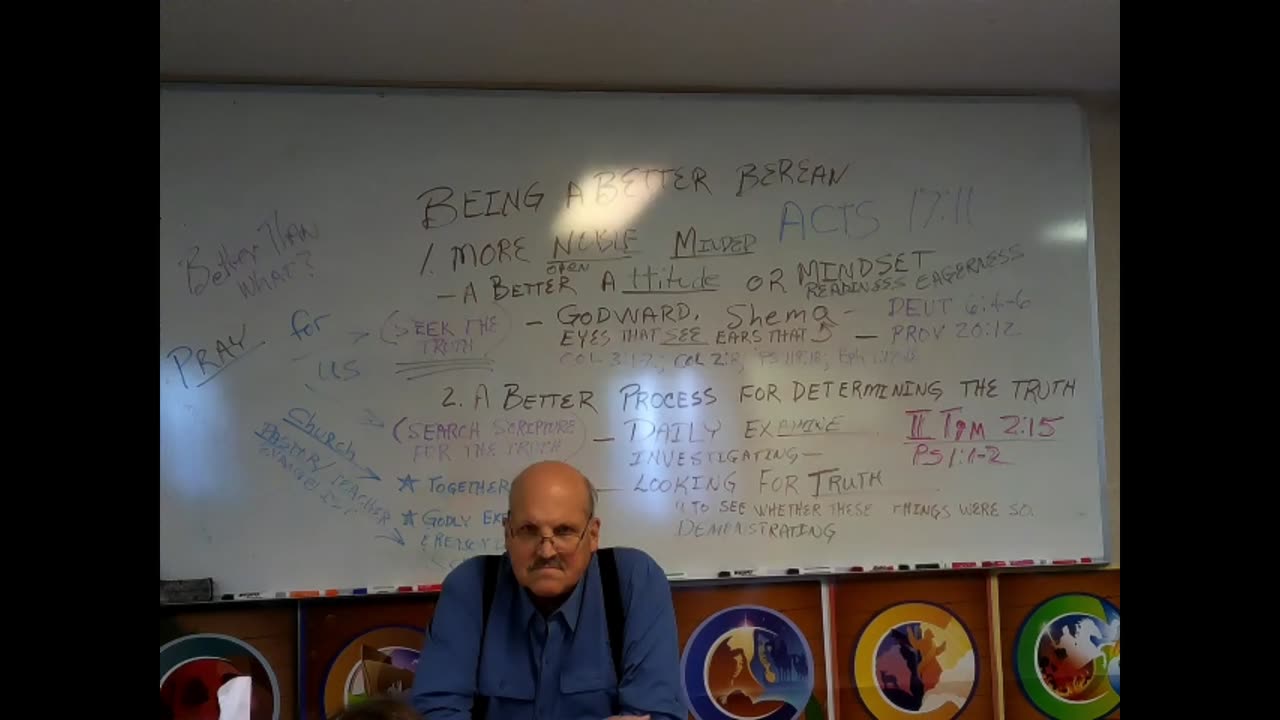 BEING A BETTER BEREAN
ACTS 17:11
Better Than
What?
1. MORE NOBLE MINDED
OPEN
- A BETTER Attitude OR MINDSET
READINESS EAGERNESS
PRAY for
us
> (SEEK THE
TRUTH)
- GODWARD, Shema - DEUT 6:4-6
EYES THAT SEE EARS THAT - PROV 20:12
COL 3:1-2; COL 2:8; PS 119:18;
2. A BETTER PROCESS FOR DETERMINING THE TRUTH
Church
PASTOR/TEACHER
> (SEARCH SCRIPTURE
FOR THE TRUTH)
- DAILY EXAMINE
INVESTIGATING -
II Tim 2:15
PS 1:1-2
★ TOGETHER
- LOOKING FOR TRUTH
★ GODLY
"TO SEE WHETHER THESE THINGS WERE SO.
DEMONSTRATING